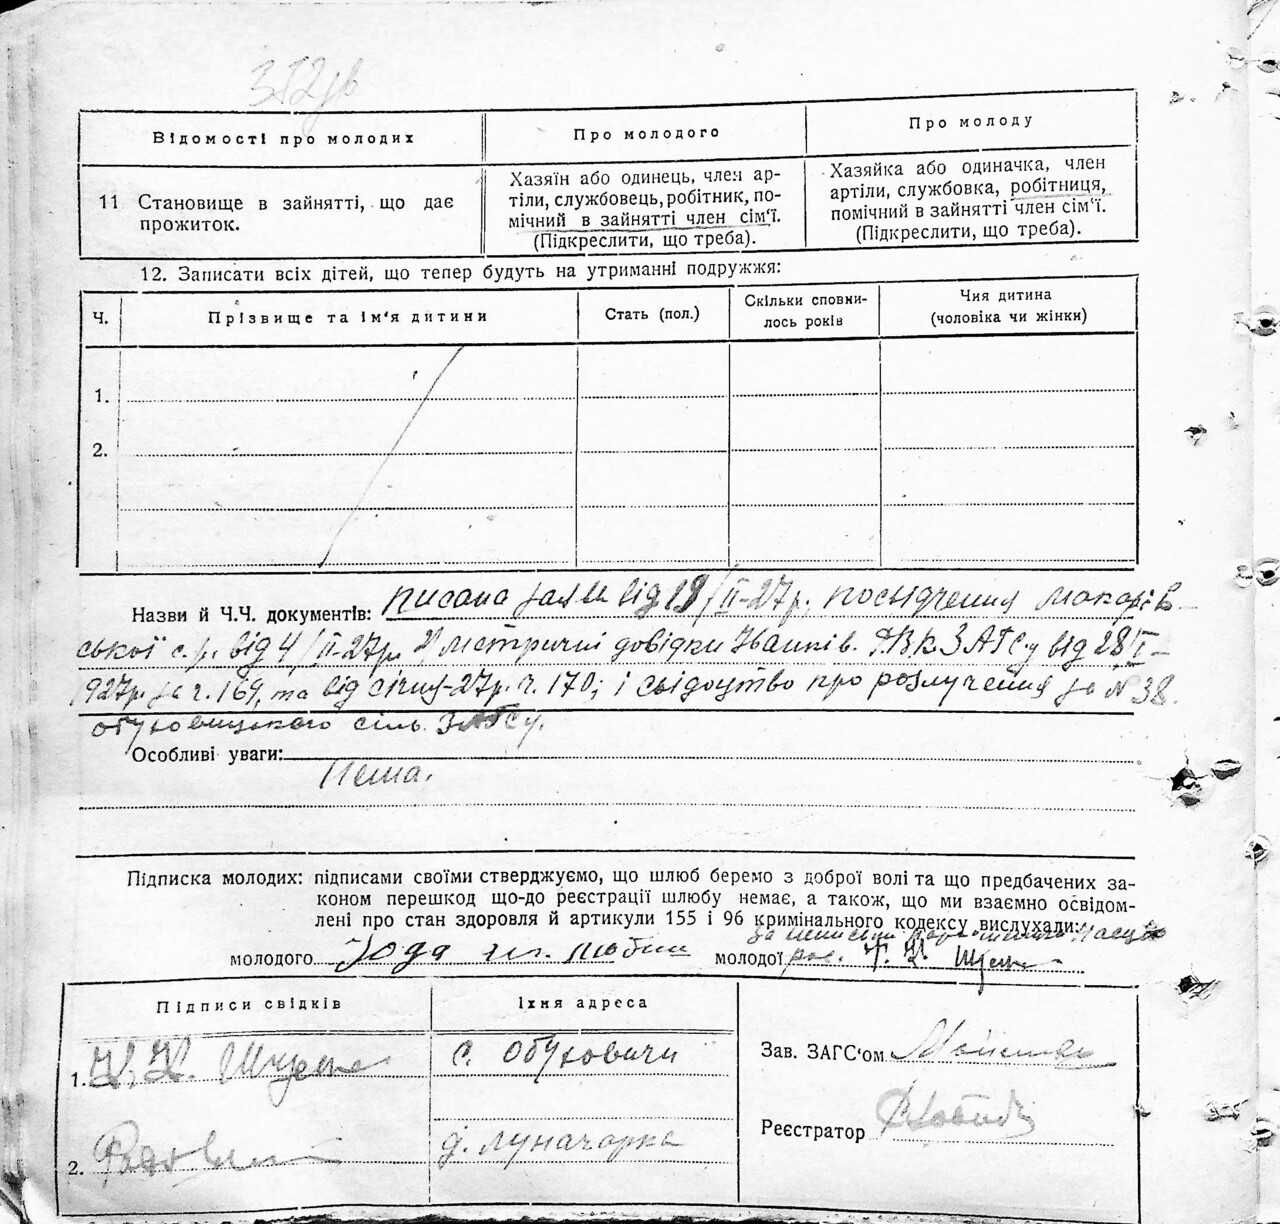 312зв
Відомості про молодих
Про молодого
Про молоду
11 Становище в зайнятті, що дає
прожиток.
Хазяїн або одинець, член ар-
тіли, службовець, робітник, по-
мічний в зайнятті член сім'ї.
(Підкреслити, що треба).
Хазяйка або одиначка, член
артіли, службовка, робітниця,
помічний в зайнятті член сім'ї.
(Підкреслити, що треба).
12. Записати всіх дітей, що тепер будуть на утриманні подружжя:
Ч.
Прізвище та ім'я дитини
Стать (пол.)
Скільки сповни-
лось років
Чия дитина
(чоловіка чи жінки)
1.
2.
Назви й Ч.Ч. документів: писана заява від 19/II-27р, посвідчення Макарів-
ської с.р. від 4/II-27р. 2/ метричні довідки Іванків. РВК ЗАГСу від 28/I-
1927р. за ч. 169, та від січня-27р. ч. 170; і свідоцтво про розлучення за № 38
обуховицького сіль. ЗАГСу.
Особливі уваги:
Нема.
Підписка молодих: підписами своїми стверджуємо, що шлюб беремо з доброї волі та що предбачених за-
коном перешкод що-до реєстрації шлюбу немає, а також, що ми взаємно освідом-
лені про стан здоровля й артикули 155 і 96 кримінального кодексу вислухали:
за
молодого
молодої
Підписи свідків
Їхня адреса
1.
с. Обуховичи
2.
д. Луначарка
Зав. ЗАГС'ом
Реєстратор